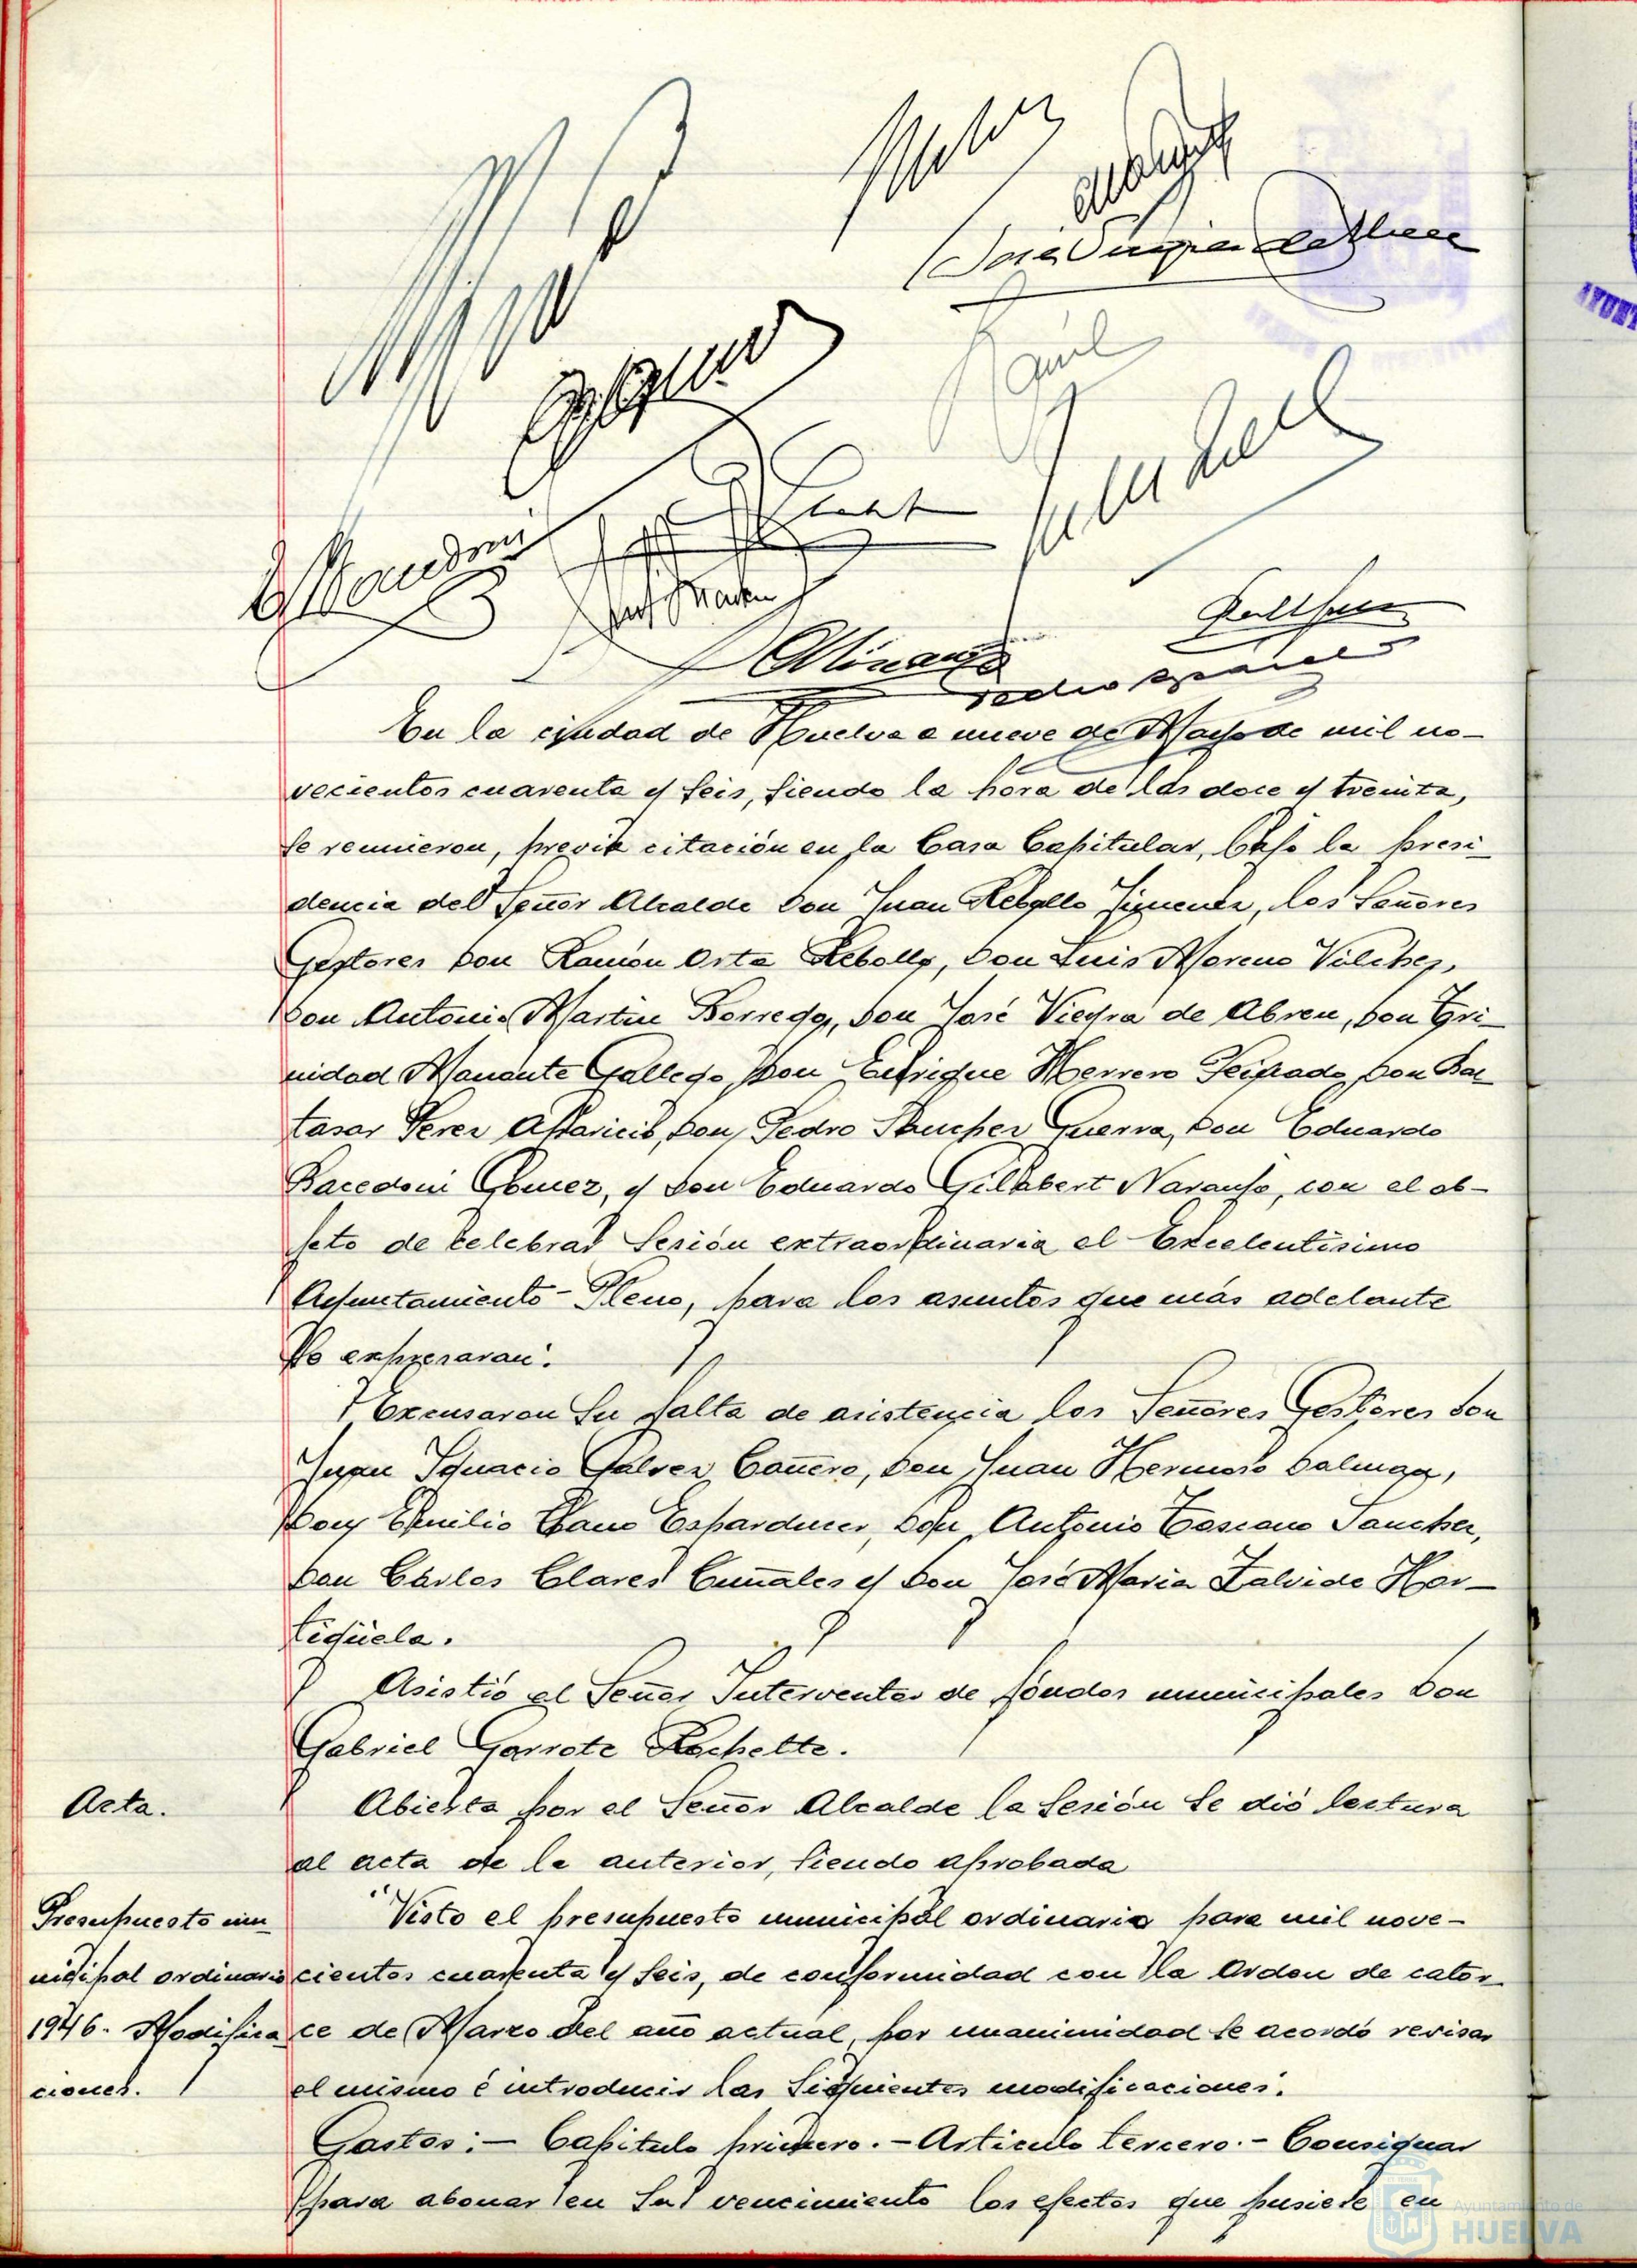 En la ciudad de Huelva a nueve de Mayo de mil no-
vecientos cuarenta y seis, siendo la hora de las doce y treinta,
se reunieron, previa citación en la Casa Capitular, bajo la presi-
dencia del Señor Alcalde Don Juan Rebollo Jimenez, los Señores
Gestores Don Ramón Orta Rebollo, Don Luis Moreno Vilchez,
Don Antonio Martin Borrego, Don José Vieyra de Abreu, Don Tri-
nidad Manante Gallego, Don Enrique Herrero Don Bal-
tasar Perez Aparicio, Don Pedro Guerra, Don Eduardo
Bacedoni Gomez, y Don Eduardo Gilabert Naranjo, con el ob-
jeto de celebrar Sesión extraordinaria el Excelentisimo
Ayuntamiento-Pleno, para los asuntos que más adelante
se expresaran.
Excusaron su falta de asistencia los Señores Gestores Don
Juan Ignacio Galvez Cañero, Don Juan Hermoso
Don Emilio Cano Don Antonio Toscano Sanchez,
Don Cárlos Clares y Don José Maria Zalvide Hor-
tigüela.
Asistió el Señor Interventor de fondos municipales Don
Gabriel Garrote Rochette.
Acta.
Abierta por el Señor Alcalde la Sesión se dió lectura
al acta de la anterior, siendo aprobada
Presupuesto mu
nicipal ordinario
1946. Modifica
ciones.
Visto el presupuesto municipal ordinario para mil nove-
cientos cuarenta y seis, de conformidad con la Orden de cator-
ce de Marzo del año actual, por unanimidad se acordó revisar
el mismo é introducir las siguientes modificaciones.
Gastos:- Capitulo primero.- Articulo tercero.- Consignar
para abonar en su vencimiento los efectos que pusiese en
Ayuntamiento de
HUELVA